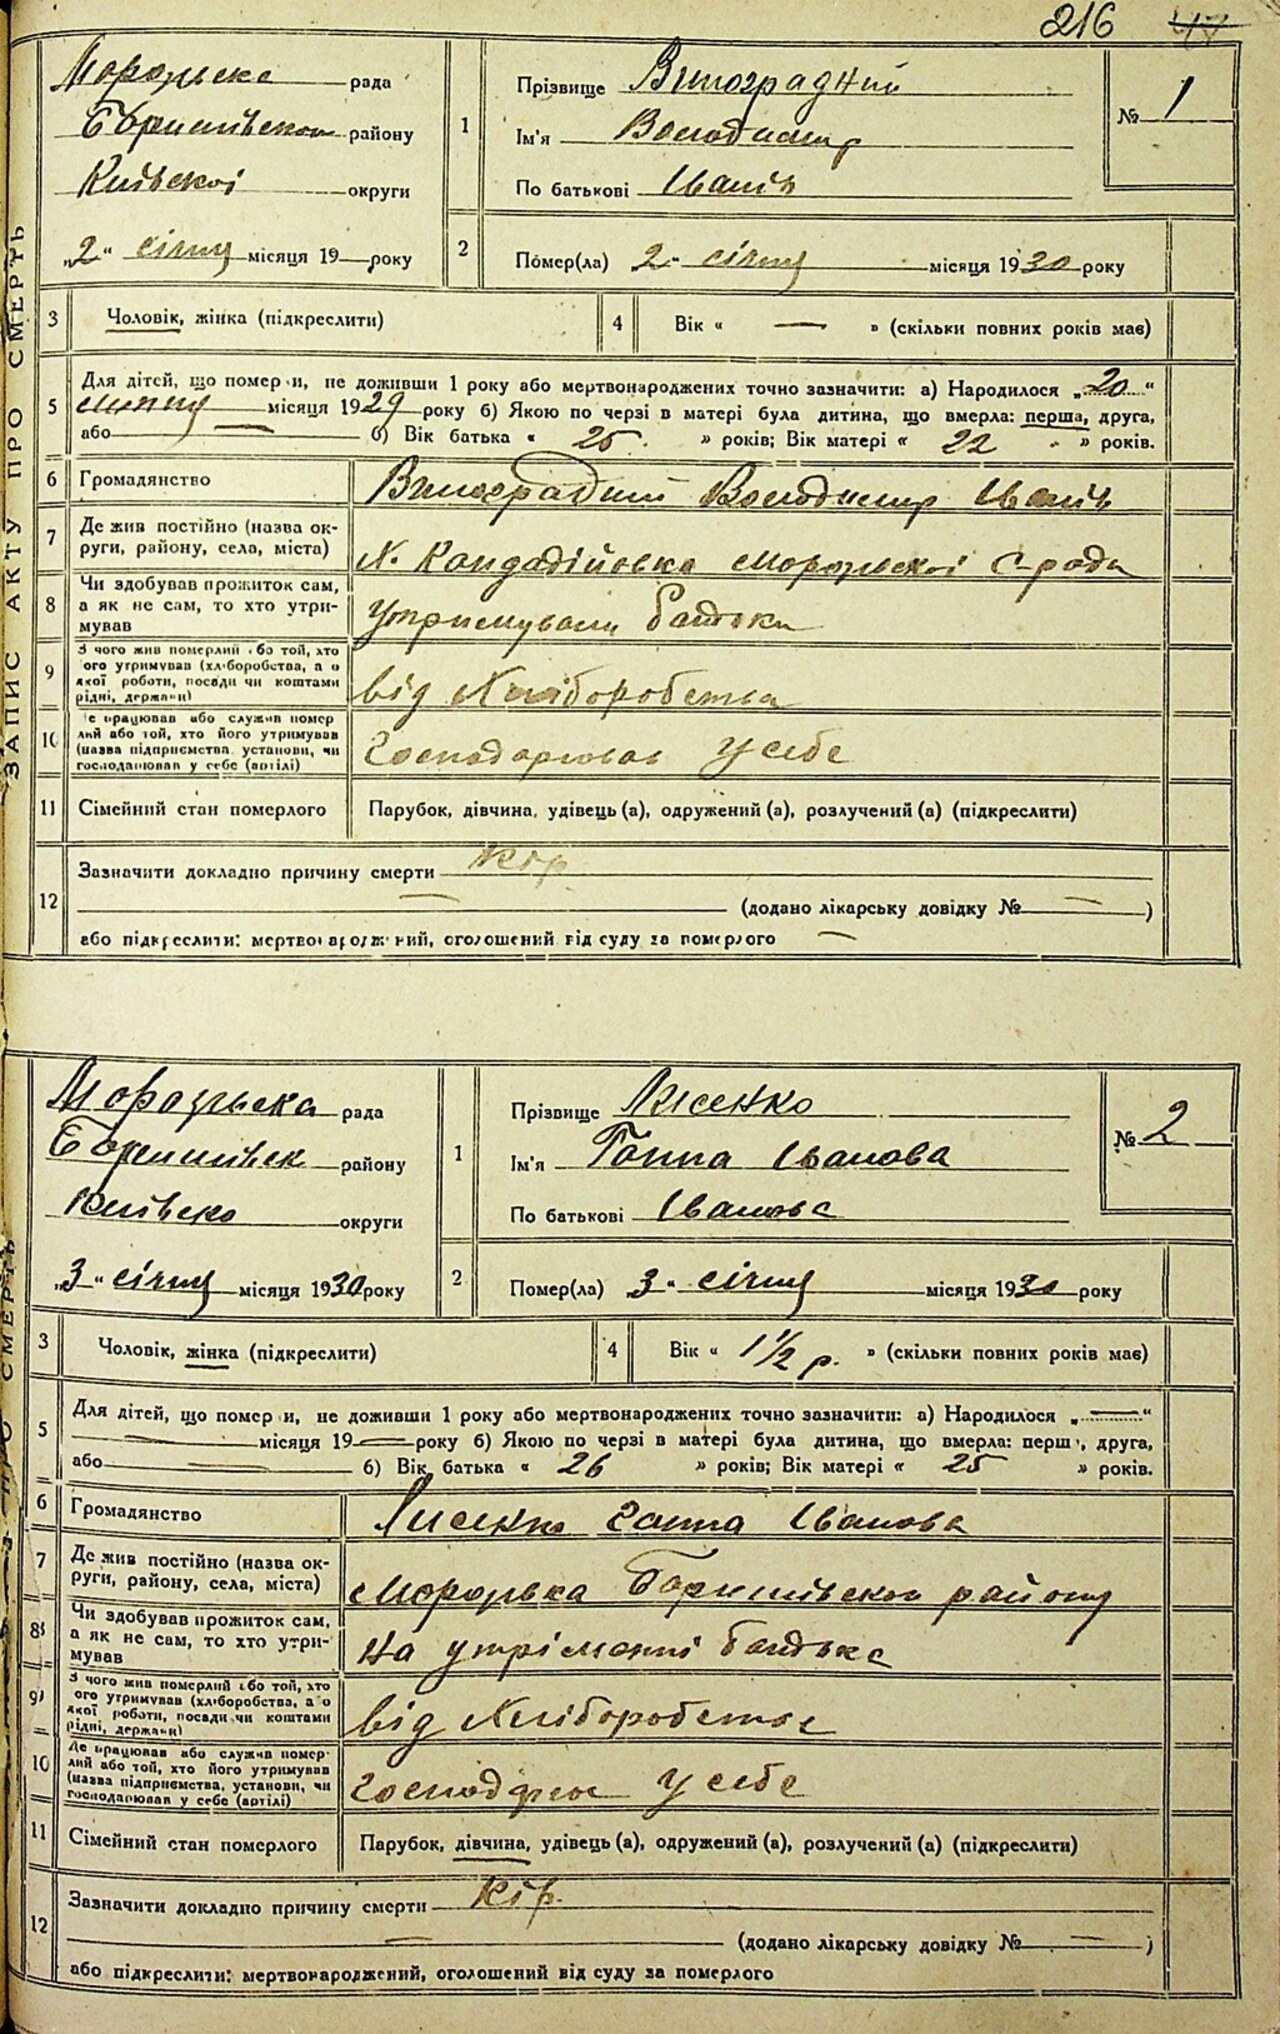 216
ЗАПИС АКТУ ПРО СМЕРТЬ
Морозівска рада
Баришівської району
Київської округи
„2“ січня місяця 19— року
1
Прізвище Виноградний
Ім'я Володимир
По батькові Іванів
№ 1
2
Помер(ла) „2“ січня місяця 1930 року
3
Чоловік, жінка (підкреслити)
4
Вік « — » (скільки повних років має)
5
Для дітей, що померли, не доживши 1 року або мертвонароджених точно зазначити: а) Народилося „20“
липня місяця 1929 року б) Якою по черзі в матері була дитина, що вмерла: перша, друга,
або — б) Вік батька « 25 » років; Вік матері « 22 » років.
6
Громадянство Виноградний Володимир Іванів
7
Де жив постійно (назва ок-
руги, району, села, міста)
Х. Морозівскої С-ради
8
Чи здобував прожиток сам,
а як не сам, то хто утри-
мував
утримували батьки
9
З чого жив померлий або той, хто
його утримував (хліборобства, а о
якої роботи, посади чи коштами
рідні, держави)
від Хліборобства
10
Де працював або служив помер
лий або той, хто його утримував
(назва підприємства, установи, чи
господарював у себе (артілі)
Господарював у себе
11
Сімейний стан померлого
Парубок, дівчина, удівець (а), одружений (а), розлучений (а) (підкреслити)
12
Зазначити докладно причину смерти Кір
— (додано лікарську довідку № — )
або підкреслити: мертвонароджений, оголошений від суду за померлого —
Морозівска рада
Баришівск району
Київско округи
„3“ січня місяця 1930 року
1
Прізвище Лисенко
Ім'я Ганна Іванова
По батькові Іванова
№ 2
2
Помер(ла) „3“ січня місяця 1930 року
3
Чоловік, жінка (підкреслити)
4
Вік « 1 ½ р. » (скільки повних років має)
5
Для дітей, що померли, не доживши 1 року або мертвонароджених точно зазначити: а) Народилося „—“
— місяця 19— року б) Якою по черзі в матері була дитина, що вмерла: перша, друга,
або — б) Вік батька « 26 » років; Вік матері « 25 » років.
6
Громадянство Лисенко Ганна Іванова
7
Де жив постійно (назва ок-
руги, району, села, міста)
Морозівка Баришівског району
8
Чи здобував прожиток сам,
а як не сам, то хто утри-
мував
На утріманні батька
9
З чого жив померлий або той, хто
його утримував (хліборобства, а о
якої роботи, посади чи коштами
рідні, держави)
від Хліборобства
10
Де працював або служив помер-
лий або той, хто його утримував
(назва підприємства, установи, чи
господарював у себе (артілі)
у себе
11
Сімейний стан померлого
Парубок, дівчина, удівець (а), одружений (а), розлучений (а) (підкреслити)
12
Зазначити докладно причину смерти Кір.
— (додано лікарську довідку № — )
або підкреслити: мертвонароджений, оголошений від суду за померлого